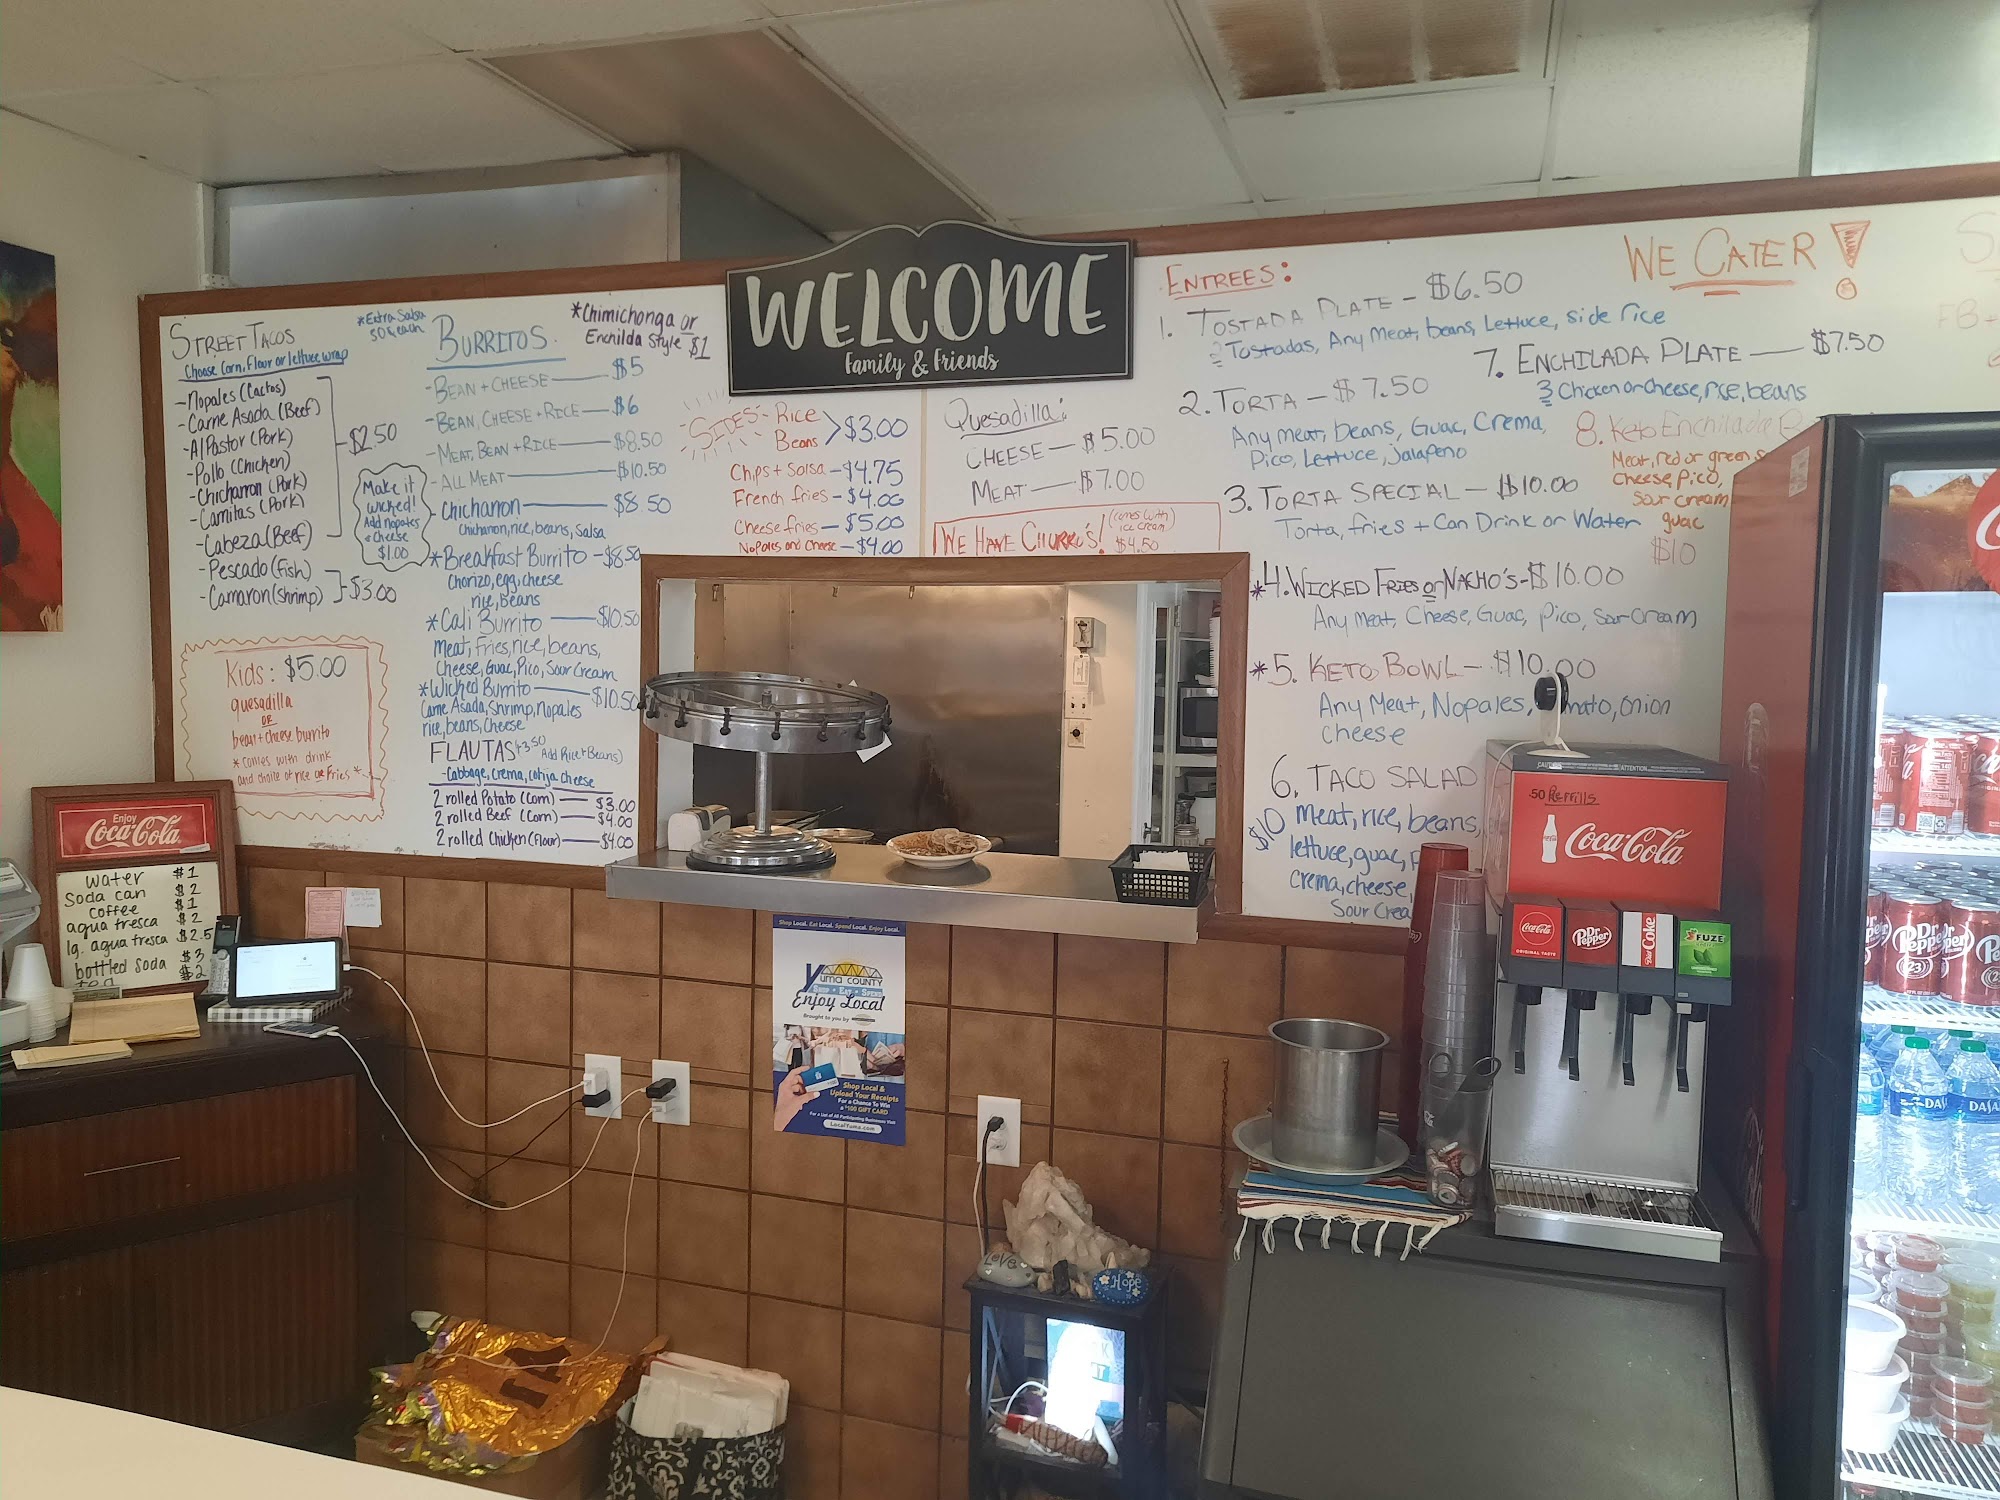 STREET TACOS
Choose Corn, Flour or lettuce wrap
-Nopales (Cactos)
-Carne Asada (Beef)
-Al Pastor (Pork)
-Pollo (Chicken)
-Chicharron (Pork)
-Carnitas (Pork)
-Cabeza (Beef)
$2.50
-Pescado (Fish)
-Camaron (shrimp)
$3.00
*Extra Salsa
50¢ each
Make it
wicked!
Add nopales
+ cheese
$1.00
Kids: $5.00
quesadilla
OR
bean + cheese burrito
* comes with drink
and choice of rice or Fries *
BURRITOS
*Chimichonga or
Enchilda Style $1
-BEAN + CHEESE — $5
-BEAN, CHEESE + RICE — $6
-MEAT, BEAN + RICE — $8.50
-ALL MEAT — $10.50
-Chicharron — $8.50
Chicharron, rice, beans, Salsa
*Breakfast Burrito - $8.50
Chorizo, egg, cheese
rice, beans
*Cali Burrito — $10.50
Meat, Fries, rice, beans,
Cheese, Guac, Pico, Sour Cream
*Wicked Burrito — $10.50
Carne Asada, Shrimp, Nopales
rice, beans, Cheese
FLAUTAS +3.50 Add Rice + Beans)
-Cabbage, crema, cotija cheese
2 rolled Potato (Corn) — $3.00
2 rolled Beef (Corn) — $4.00
2 rolled Chicken (Flour) — $4.00
WELCOME
Family & Friends
SIDES - Rice
Beans > $3.00
Chips + Salsa - $4.75
French fries - $4.00
Cheese fries - $5.00
Nopales and Cheese - $4.00
Quesadilla:
CHEESE — $5.00
MEAT — $7.00
WE HAVE CHURRO'S! (comes with) ice cream $4.50
ENTREES:
1. TOSTADA PLATE - $6.50
2 Tostadas, Any Meat, beans, Lettuce, side rice
2. TORTA - $7.50
Any meat, beans, Guac, Crema,
Pico, Lettuce, Jalapeno
3. TORTA SPECIAL - $10.00
Torta, fries + Can Drink or Water
*4. WICKED FRIES or NACHO'S - $10.00
Any Meat, Cheese, Guac, Pico, Sour Cream
*5. KETO BOWL - $10.00
Any Meat, Nopales, mato, onion
cheese
6. TACO SALAD
$10 meat, rice, beans,
lettuce, guac, P
Crema, cheese,
Sour Crea
WE CATER!
7. ENCHILADA PLATE — $7.50
3 Chicken or cheese, rice, beans
8. Keto Enchilada
Meat, red or green s
Cheese, Pico,
Sour cream
guac
$10
FB
Enjoy
Coca-Cola
water $1
Soda can $2
coffee $1
agua fresca $2
lg. agua fresca $2.5
bottled soda $3
$2
Shop Local. Eat Local. Spend Local. Enjoy Local.
Yuma COUNTY
SHOP • EAT • SPEND
Enjoy Local
Brought to you by
Shop Local &
Upload Your Receipts
For a Chance To Win
a $100 GIFT CARD
For a List of All Participating Businesses Visit
LocalYuma.com
Love
Hope
CAUTION
ATTENTION
.50 Refills
Coca-Cola
Coca-Cola
ORIGINAL TASTE
Dr Pepper
Diet Coke
FUZE
Dr Pepper
23
DASANI
DASA